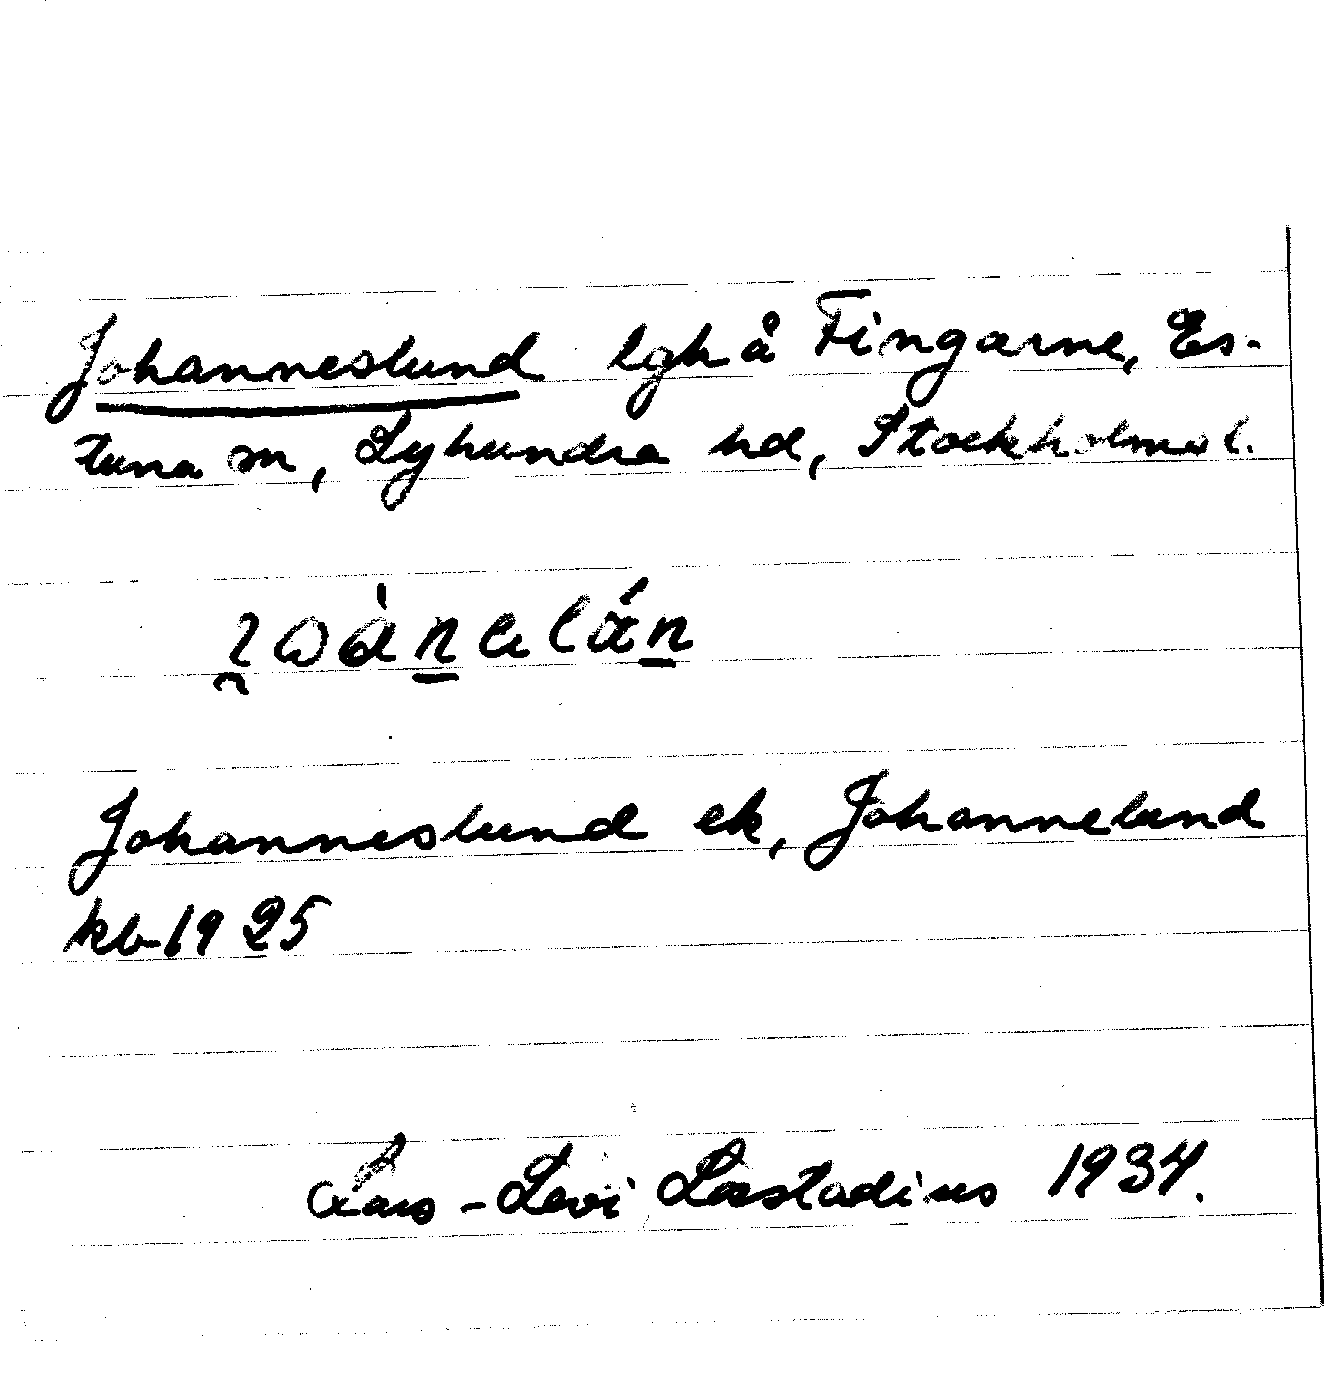 Johanneslund lgh å Fingarne, Es-
tuna sn, Lyhundra hd, Stockholms l.
Johanneslund ek, Johannelund
kb 1925
Lars-Levi Læstadius 1934.